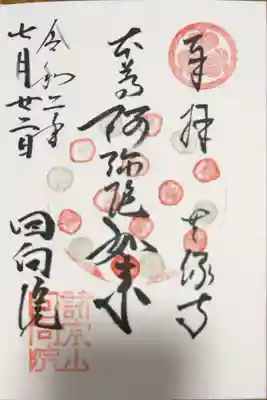 奉拝　無縁寺
本尊阿弥陀如来
回向院
令和二年
七月廿二日
諸宗山
回向院